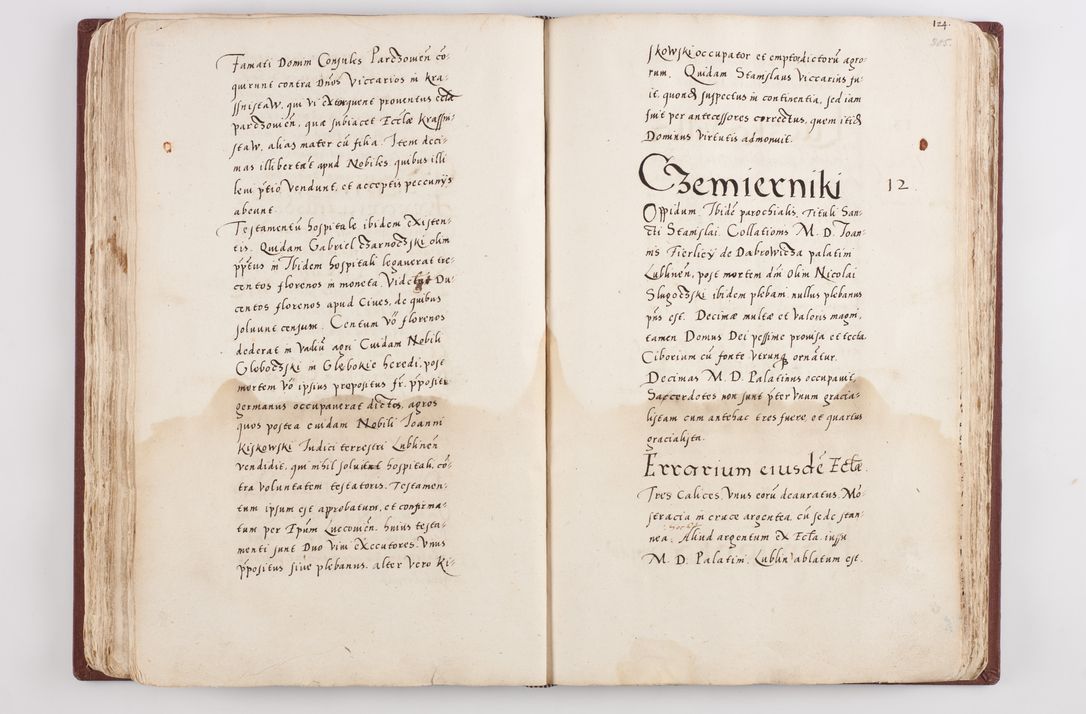 Famati Domini Consules Parczouień cō-
quirunt contra Dños Viccarios in Kra-
ssnistaw, qui vi extorquent prouentus eccłæ
parczouień, quæ subiacet Ecclæ Krassni-
staw, alias mater cū filia. Item deci-
mas illibertāt apud Nobiles quibus illi
leui p̄tio vendunt, et acceptis peccunÿs
abeunt.
Testamentū hospitale ibidem existen-
tis. Quidam Gabriel Czarnoczski olim
p̄p̄tus in Ibidem hospitali legauerat tre-
centos florenos in moneta. Videlꝫ Du-
centos florenos apud Ciues, de quibus
soluunt censum. Centum vō florenos
dederat in vadiū agri Cuidam Nobili
Globoczski in Glebokie heredi, post
mortem vō ipsius prepositus fr. p̄positi
germanus occupauerat dictos, agros
quos postea cuidam Nobili Joanni
Kiskowski Iudici terrestri Lublinēn
vendidit, qui nihil soluunt hospitali, cō-
tra voluntatem testatoris. Testamen-
tum ipsum est approbatum, et confirma-
tum per Ep̄um Luceouień. huius testa-
menti sunt Duo viui exccutores. Vnus
p̄positus siue plebanus. alter vero Ki-
124.
305.
skowski occupator et emptor dictorū agro-
rum. Quidam Stanislaus viccarius fu-
it, quondā suspectus in continentia, sed iam
fuit per antecessores correctus, quem itidē
Dominus virtutis admonuit.
Czemierniki 12.
Oppidum, Ibidē parochialis, Tituli San-
cti Stanislai. Collationis M. D. Joan-
nis Fierleÿ de Dabrowicza palatini
Lublinēn, post mortem dñi olim Nicolai
Slugoczski ibidem plebani nullus plebanus
p̄ns est. Decimæ multæ et valoris magni,
tamen Domus Dei pessime prouisa et tecta.
Ciborium cū fonte vtrunq ornātur.
Decimas M. D. Palatinus occupauit,
Saccerdotes non sunt p̄ter vnum gracia-
listam cum antehac tres fuere, et quartus
gracialista.
Errarium eiusdē Ecłæ.
Tres Calices, vnus eorū deauratus. Mō-
stracia in cruce argentea, cū sede stan-
nea. Aliud argentum ex Ecła. iussu
M. D. Palatini. Lublin ablatum est.